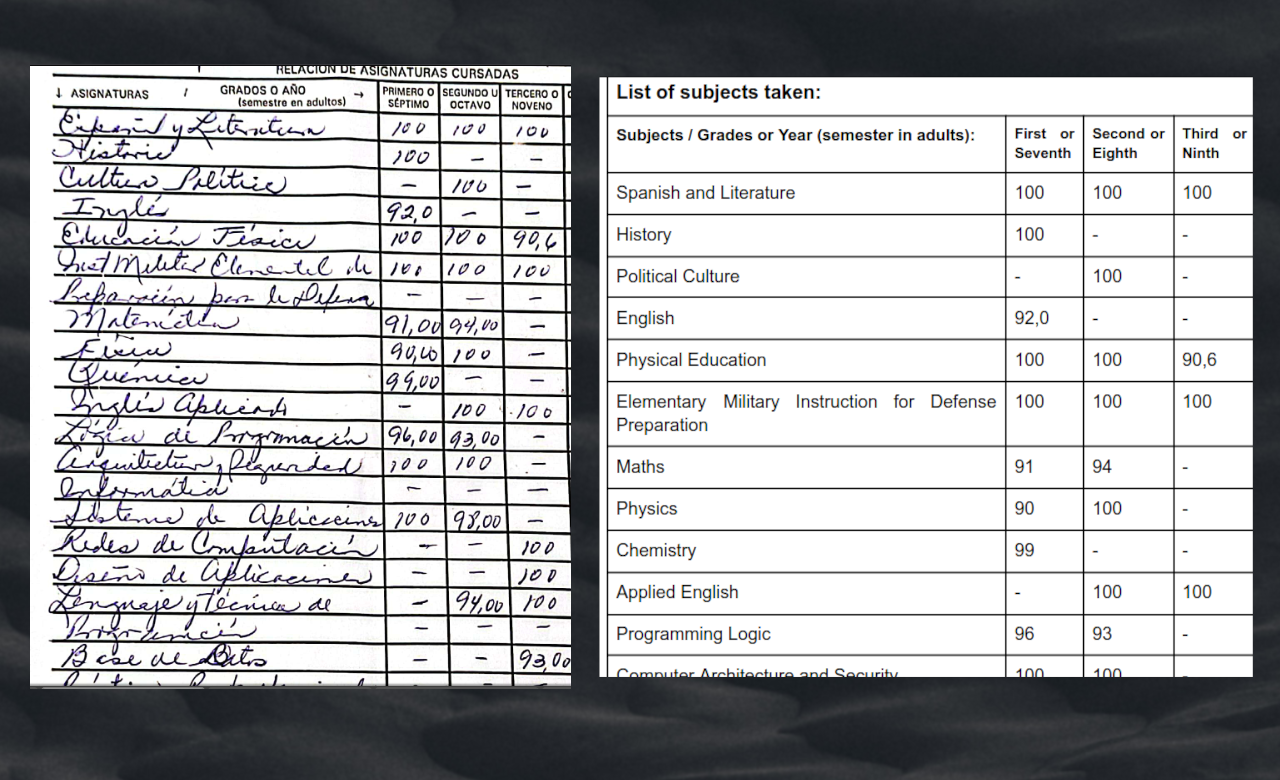 RELACION DE ASIGNATURAS CURSADAS
↓ ASIGNATURAS / GRADOS O AÑO → PRIMERO O SEGUNDO U TERCERO O
(semestre en adultos) SÉPTIMO OCTAVO NOVENO
Español y Literatura 100 100 100
Historia 100 – –
Cultura Política – 100 –
Inglés 92,0 – –
Educación Física 100 100 90,6
Inst Militar Elemental de 100 100 100
Preparación para la Defensa – – –
Matemática 91,00 94,00 –
Física 90,00 100 –
Química 99,00 – –
Inglés Aplicado – 100 100
Lógica de Programación 96,00 93,00 –
Arquitectura y Seguridad 100 100 –
Informática – – –
Sistema de Aplicaciones 100 98,00 –
Redes de Computación – – 100
Diseño de Aplicaciones – – 100
Lenguaje y Técnica de – 94,00 100
Programación – – –
Base de Datos – – 93,00
List of subjects taken:
Subjects / Grades or Year (semester in adults): First or Second or Third or
Seventh Eighth Ninth
Spanish and Literature 100 100 100
History 100 - -
Political Culture - 100 -
English 92,0 - -
Physical Education 100 100 90,6
Elementary Military Instruction for Defense 100 100 100
Preparation
Maths 91 94 -
Physics 90 100 -
Chemistry 99 - -
Applied English - 100 100
Programming Logic 96 93 -
Computer Architecture and Security 100 100 -